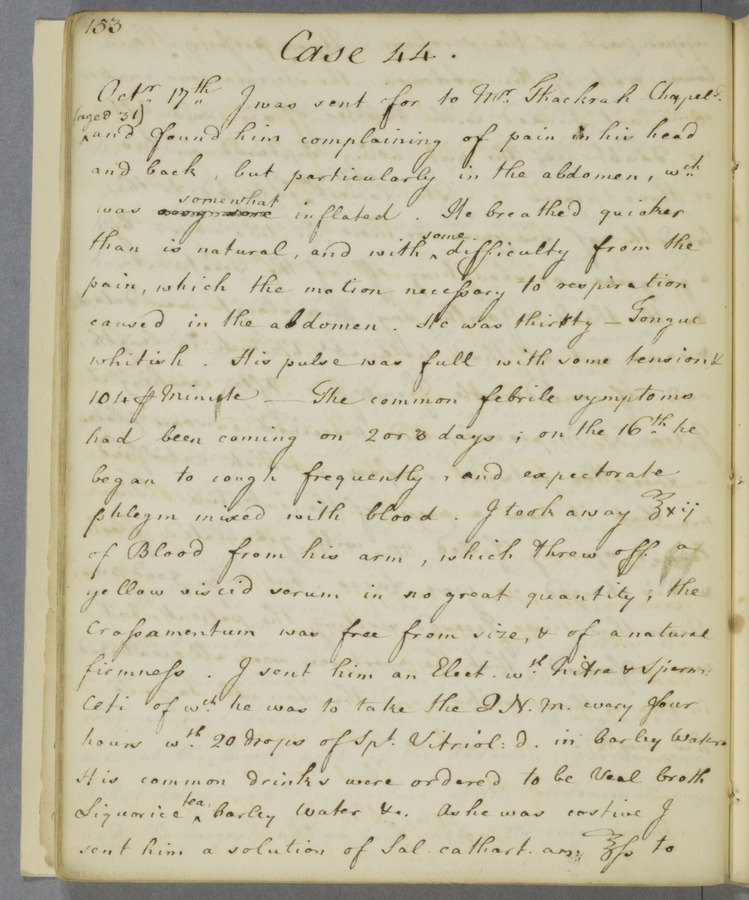 153
Case 44.
Octr. 17th. I was sent for to Mr. Thackrah Chapeld.
(aged 31)
and found him complaining of pain in his head
and back, but particularly in the abdomen, wch.
somewhat
was inflated. He breathed quicker
some
than is natural, and with difficulty from the
pain, which the motion necessary to respiration
caused in the abdomen. He was thirsty – Tongue
whitish. His pulse was full with some tension &
104 ⅌ Minute — The common febrile symptoms
had been coming on 2 or 3 days; on the 16th. he
began to cough frequently, and expectorate
phlegm mixed with blood. I took away ℥xij
of Blood from his arm, which threw off a
yellow viscid serum in no great quantity; the
Crassamentum was free from size, & of a natural
firmness. I sent him an Elect. wth. Nitre & Sperm:
Ceti of wch. he was to take the Q.N.M. every four
hours wth. 20 drops of Spt. Vitriol: d. in barley Water.
His common drinks were ordered to be Veal broth
tea
Liquorice ‸ barley water &c. As he was costive I
sent him a solution of Sal. cathart. am: ℥ss to